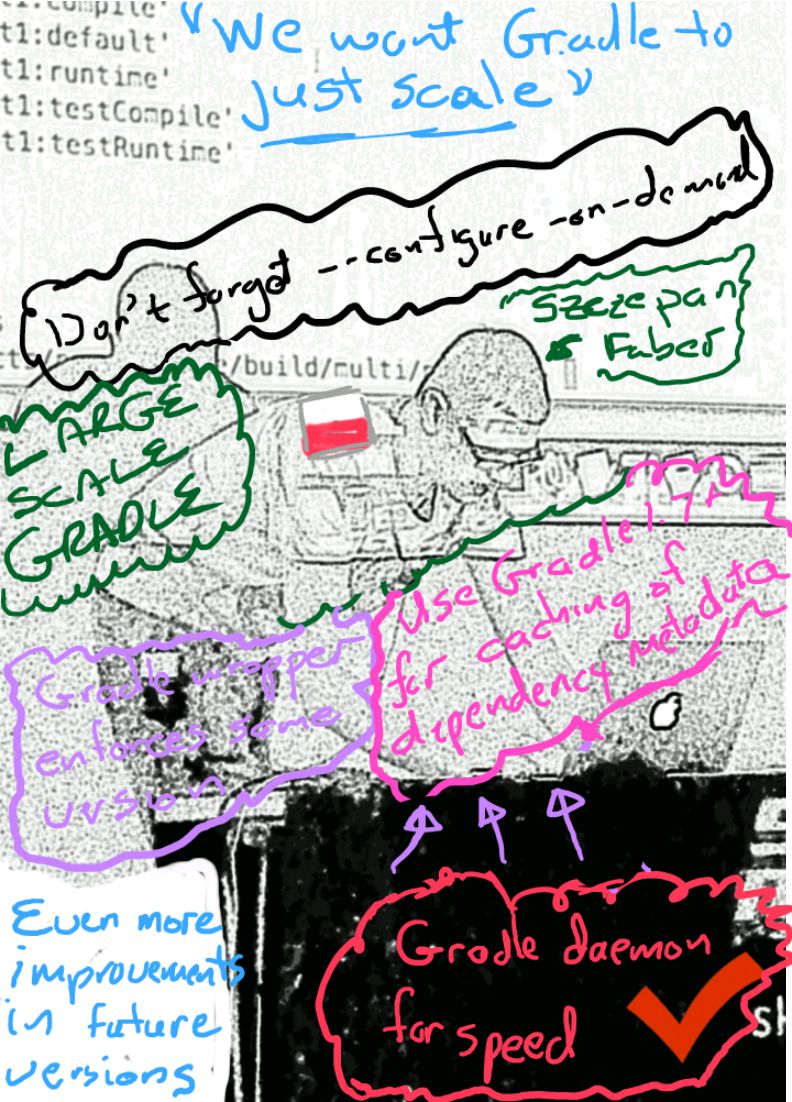 t1:compile'
t1:default'
t1:runtime'
t1:testCompile'
t1:testRuntime'
"We want Gradle to
just scale"
Don't forget --configure-on-demand
Szczepan
Faber
:/build/multi/
LARGE
SCALE
GRADLE
Use Gradle 1.7+
for caching of
dependency metadata
Gradle wrapper
enforces same
version
Even more
improvements
in future
versions
Gradle daemon
for speed
sh